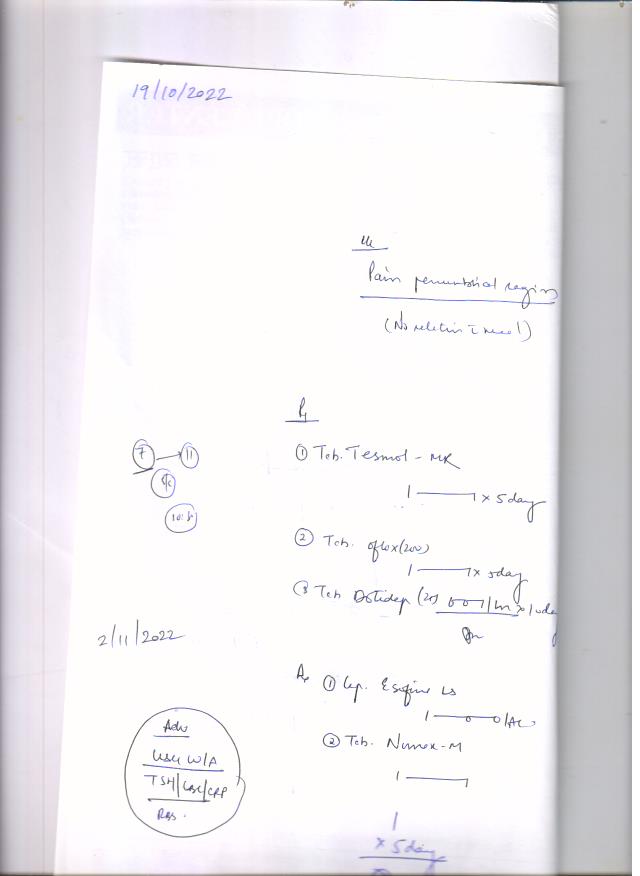 19/10/2022
Pain periumbilical region
(No relation c meal)
Rx
① Tab. Tesmol - MR
1 —— 1 x 5 day
7 → 11
② Tab. oflox (200)
1 —— 1 x 5 day
③ Tab Dotidep (25) 0 0 1 / hs x 10 day
2/11/2022
Rx ① Cap. Esofine LS
1 — 0 — 0 / AC
② Tab. Numox-M
1 —— 1
Adv
USG W/A
TSH/CBC/CRP
RBS.
1
x 5 day